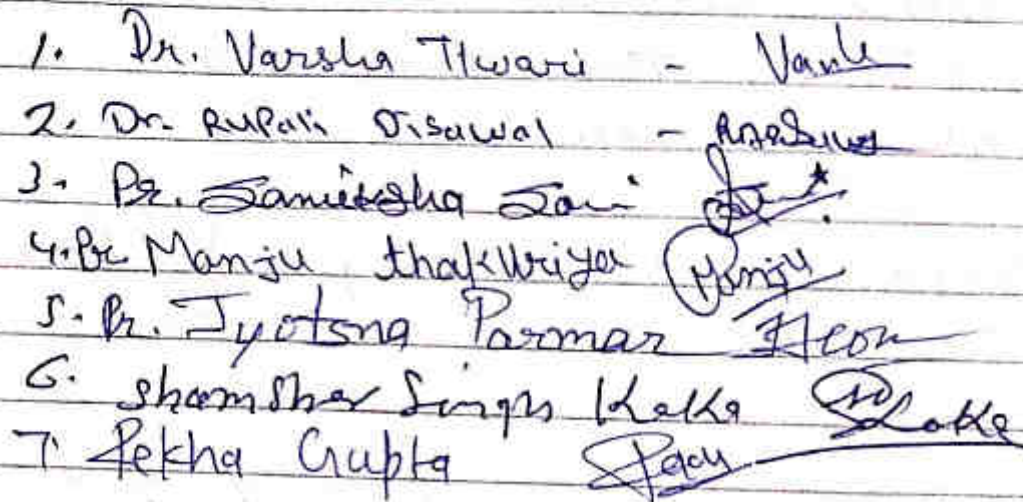 1. Dr. Varsha Tiwari -
2. Dr. Rupali Disawal -
3. Dr. Samiksha
4. Dr Manju thakuriya Manju
5. Dr. Jyotsna Parmar
6. Shamsher Singh Kaka
7 Rekha Gupta